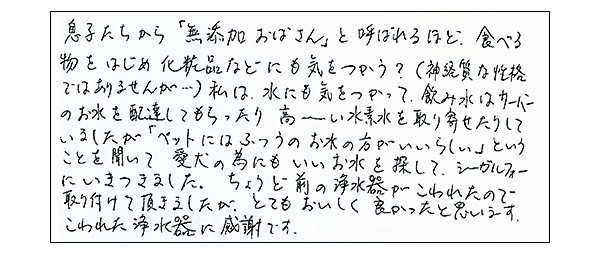 息子たちから「無添加おばさん」と呼ばれるほど、食べる
物をはじめ化粧品などにも気をつかう？（神経質な性格
ではありませんが…）私は、水にも気をつかって、飲み水はサーバー
のお水を配達してもらったり 高ーーい水素水を取り寄せたりして
いましたが「ペットにはふつうのお水の方がいいらしい」という
ことを聞いて 愛犬の為にもいいお水を探して、シーガルフォー
にいきつきました。ちょうど前の浄水器がこわれたので
取り付けて頂きましたが、とてもおいしく良かったと思います。
こわれた浄水器に感謝です。